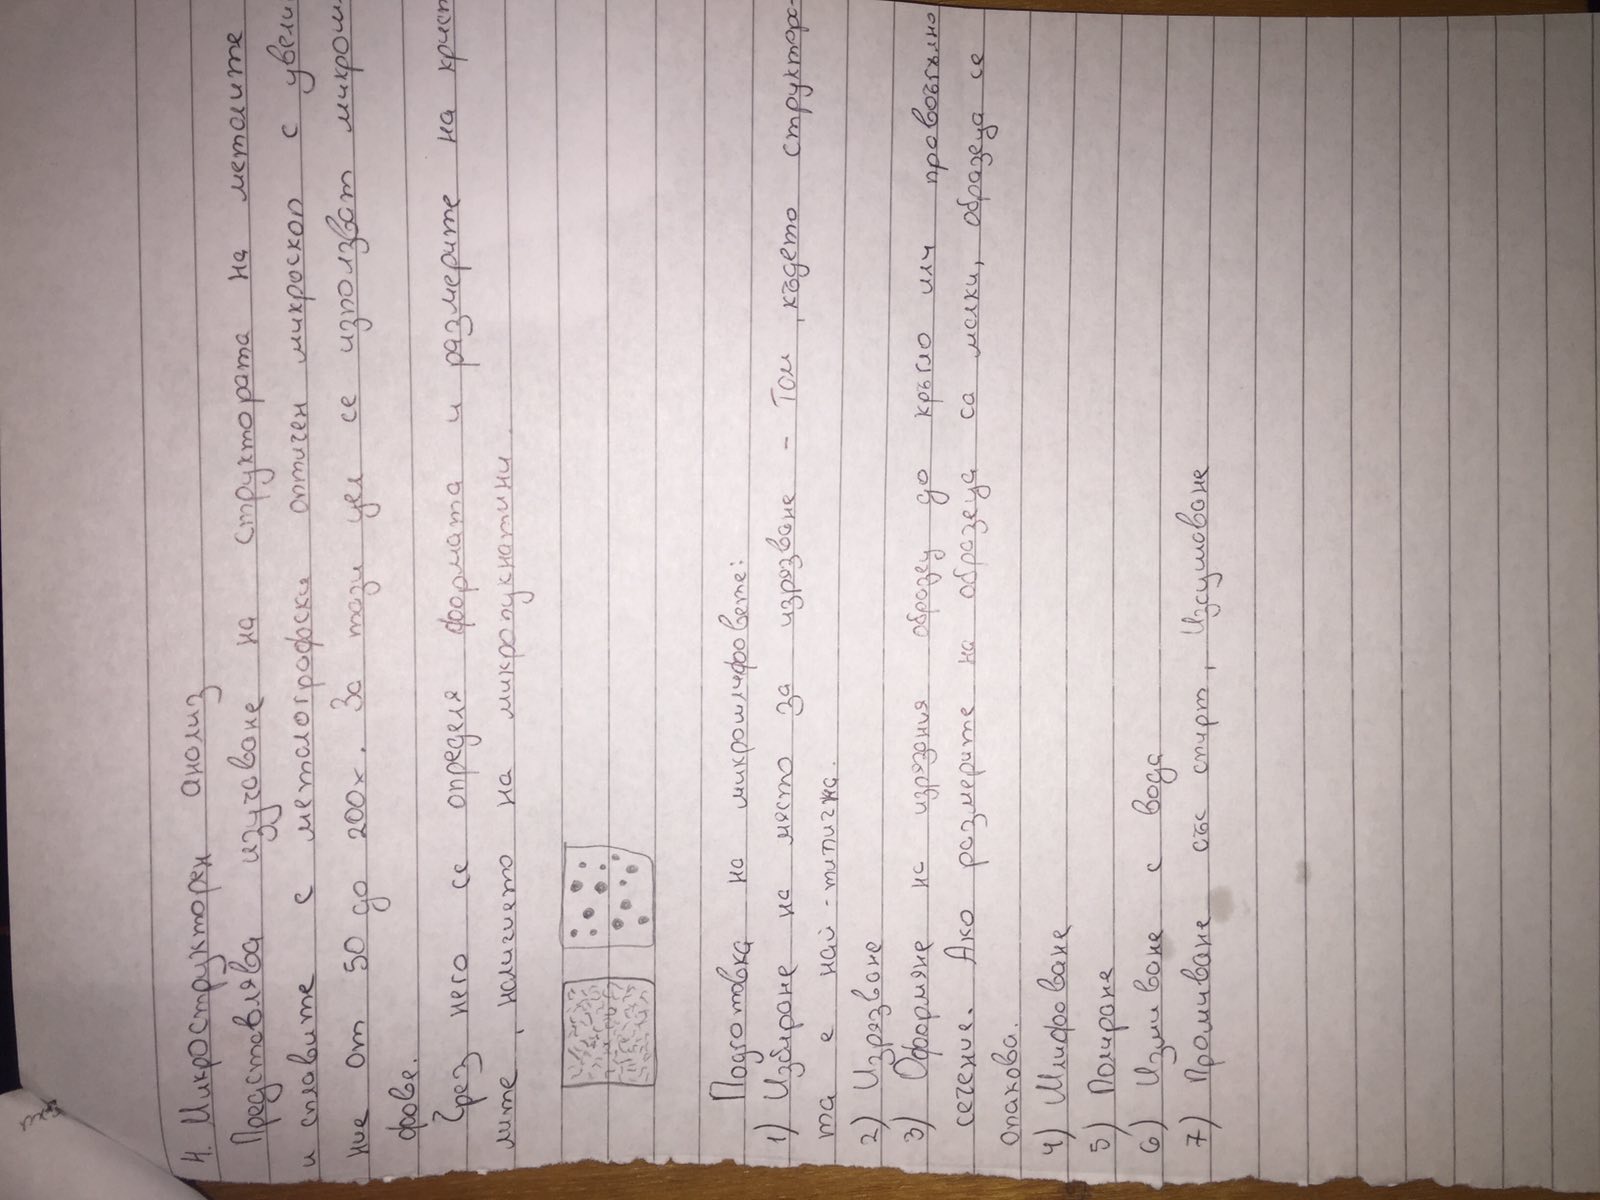 4. Микроструктoрен анализ
Представлява изучаване на структората на металите
и сплавите с металографски оптичен микроскоп с увели
ние от 50 до 200х. За тази цел се използват микрош
фове.
Чрез него се определя формата и размерите на крист
лите, наличието на микропукнатини.
Подготовка на микрошлифовете:
1) Избиране на място за изрязване - Там, където структора-
та е най-типична.
2) Изрязване
3) Оформяне на изрязания образец до кръгло или правоъгълно
сечение. Ако размерите на образеца са малки, образеца се
опакова.
4) Шлифоване
5) Полиране
6) Измиване с вода
7) Промиване със спирт, Изсушаване